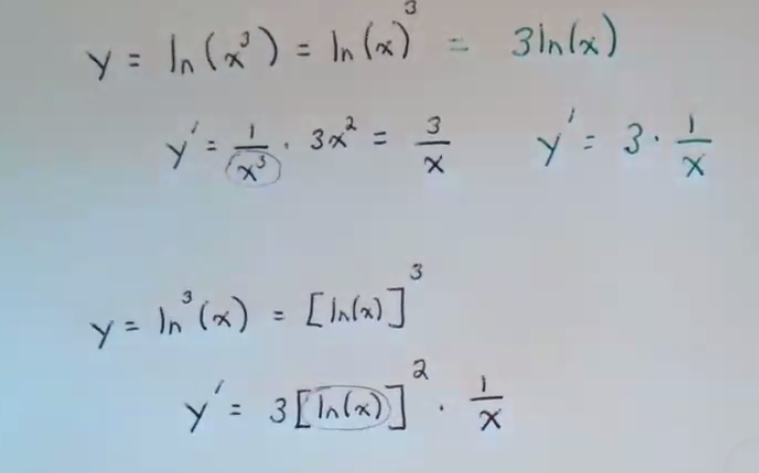 y = ln(x³) = ln(x)³ = 3ln(x)
y' = 1/x³ · 3x² = 3/x y' = 3 · 1/x
y = ln³(x) = [ln(x)]³
y' = 3[ln(x)]² · 1/x